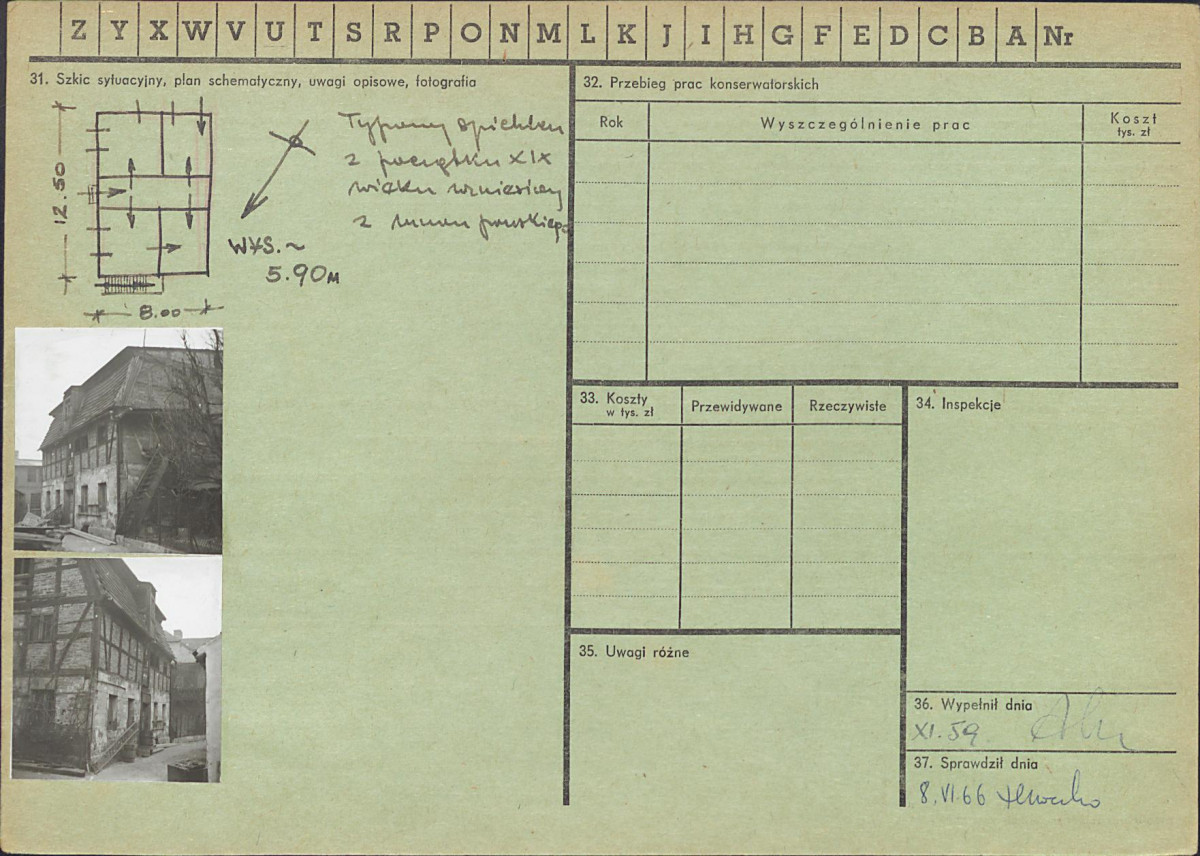 Z Y X W V U T S R P O N M L K J I H G F E D C B A Nr
31. Szkic sytuacyjny, plan schematyczny, uwagi opisowe, fotografia
12.50
8.00
WYS. ~
5.90 M
Typowy spichlerz
z początku XIX
wieku wzniesiony
z muru pruskiego
32. Przebieg prac konserwatorskich
Rok
Wyszczególnienie prac
Koszt
tys. zł
33. Koszty
w tys. zł
Przewidywane
Rzeczywiste
34. Inspekcje
35. Uwagi różne
36. Wypełnił dnia
XI. 59.
37. Sprawdził dnia
8. VI. 66